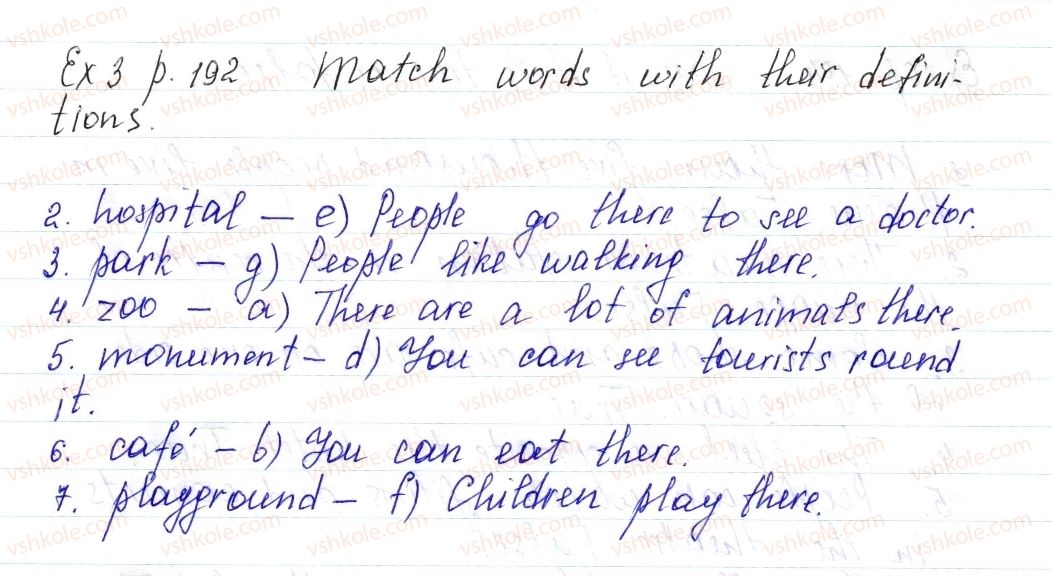 Ex 3 p. 192 Match words with their defini-
tions.
2. hospital – e) People go there to see a doctor.
3. park – g) People like walking there.
4. zoo – a) There are a lot of animals there.
5. monument – d) You can see tourists round
it.
6. café – b) You can eat there.
7. playground – f) Children play there.